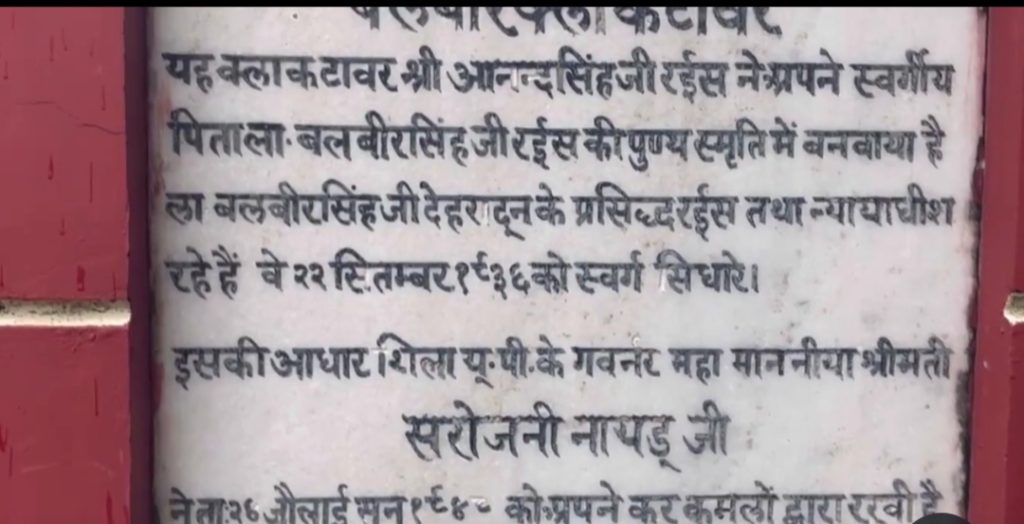 बलबीर क्लाक टावर
यह क्लाक टावर श्री आनन्दसिंह जी रईस ने अपने स्वर्गीय
पिता ला. बलबीरसिंह जी रईस की पुण्य स्मृति में बनवाया है
ला बलबीरसिंह जी देहरादून के प्रसिद्ध रईस तथा न्यायाधीश
रहे हैं वे २२ सितम्बर १९३६ को स्वर्ग सिधारे।
इसकी आधार शिला यू.पी. के गवर्नर महा माननीया श्रीमती
सरोजनी नायडू जी
ने ता: जौलाई सन को अपने कर कमलों द्वारा रखी है